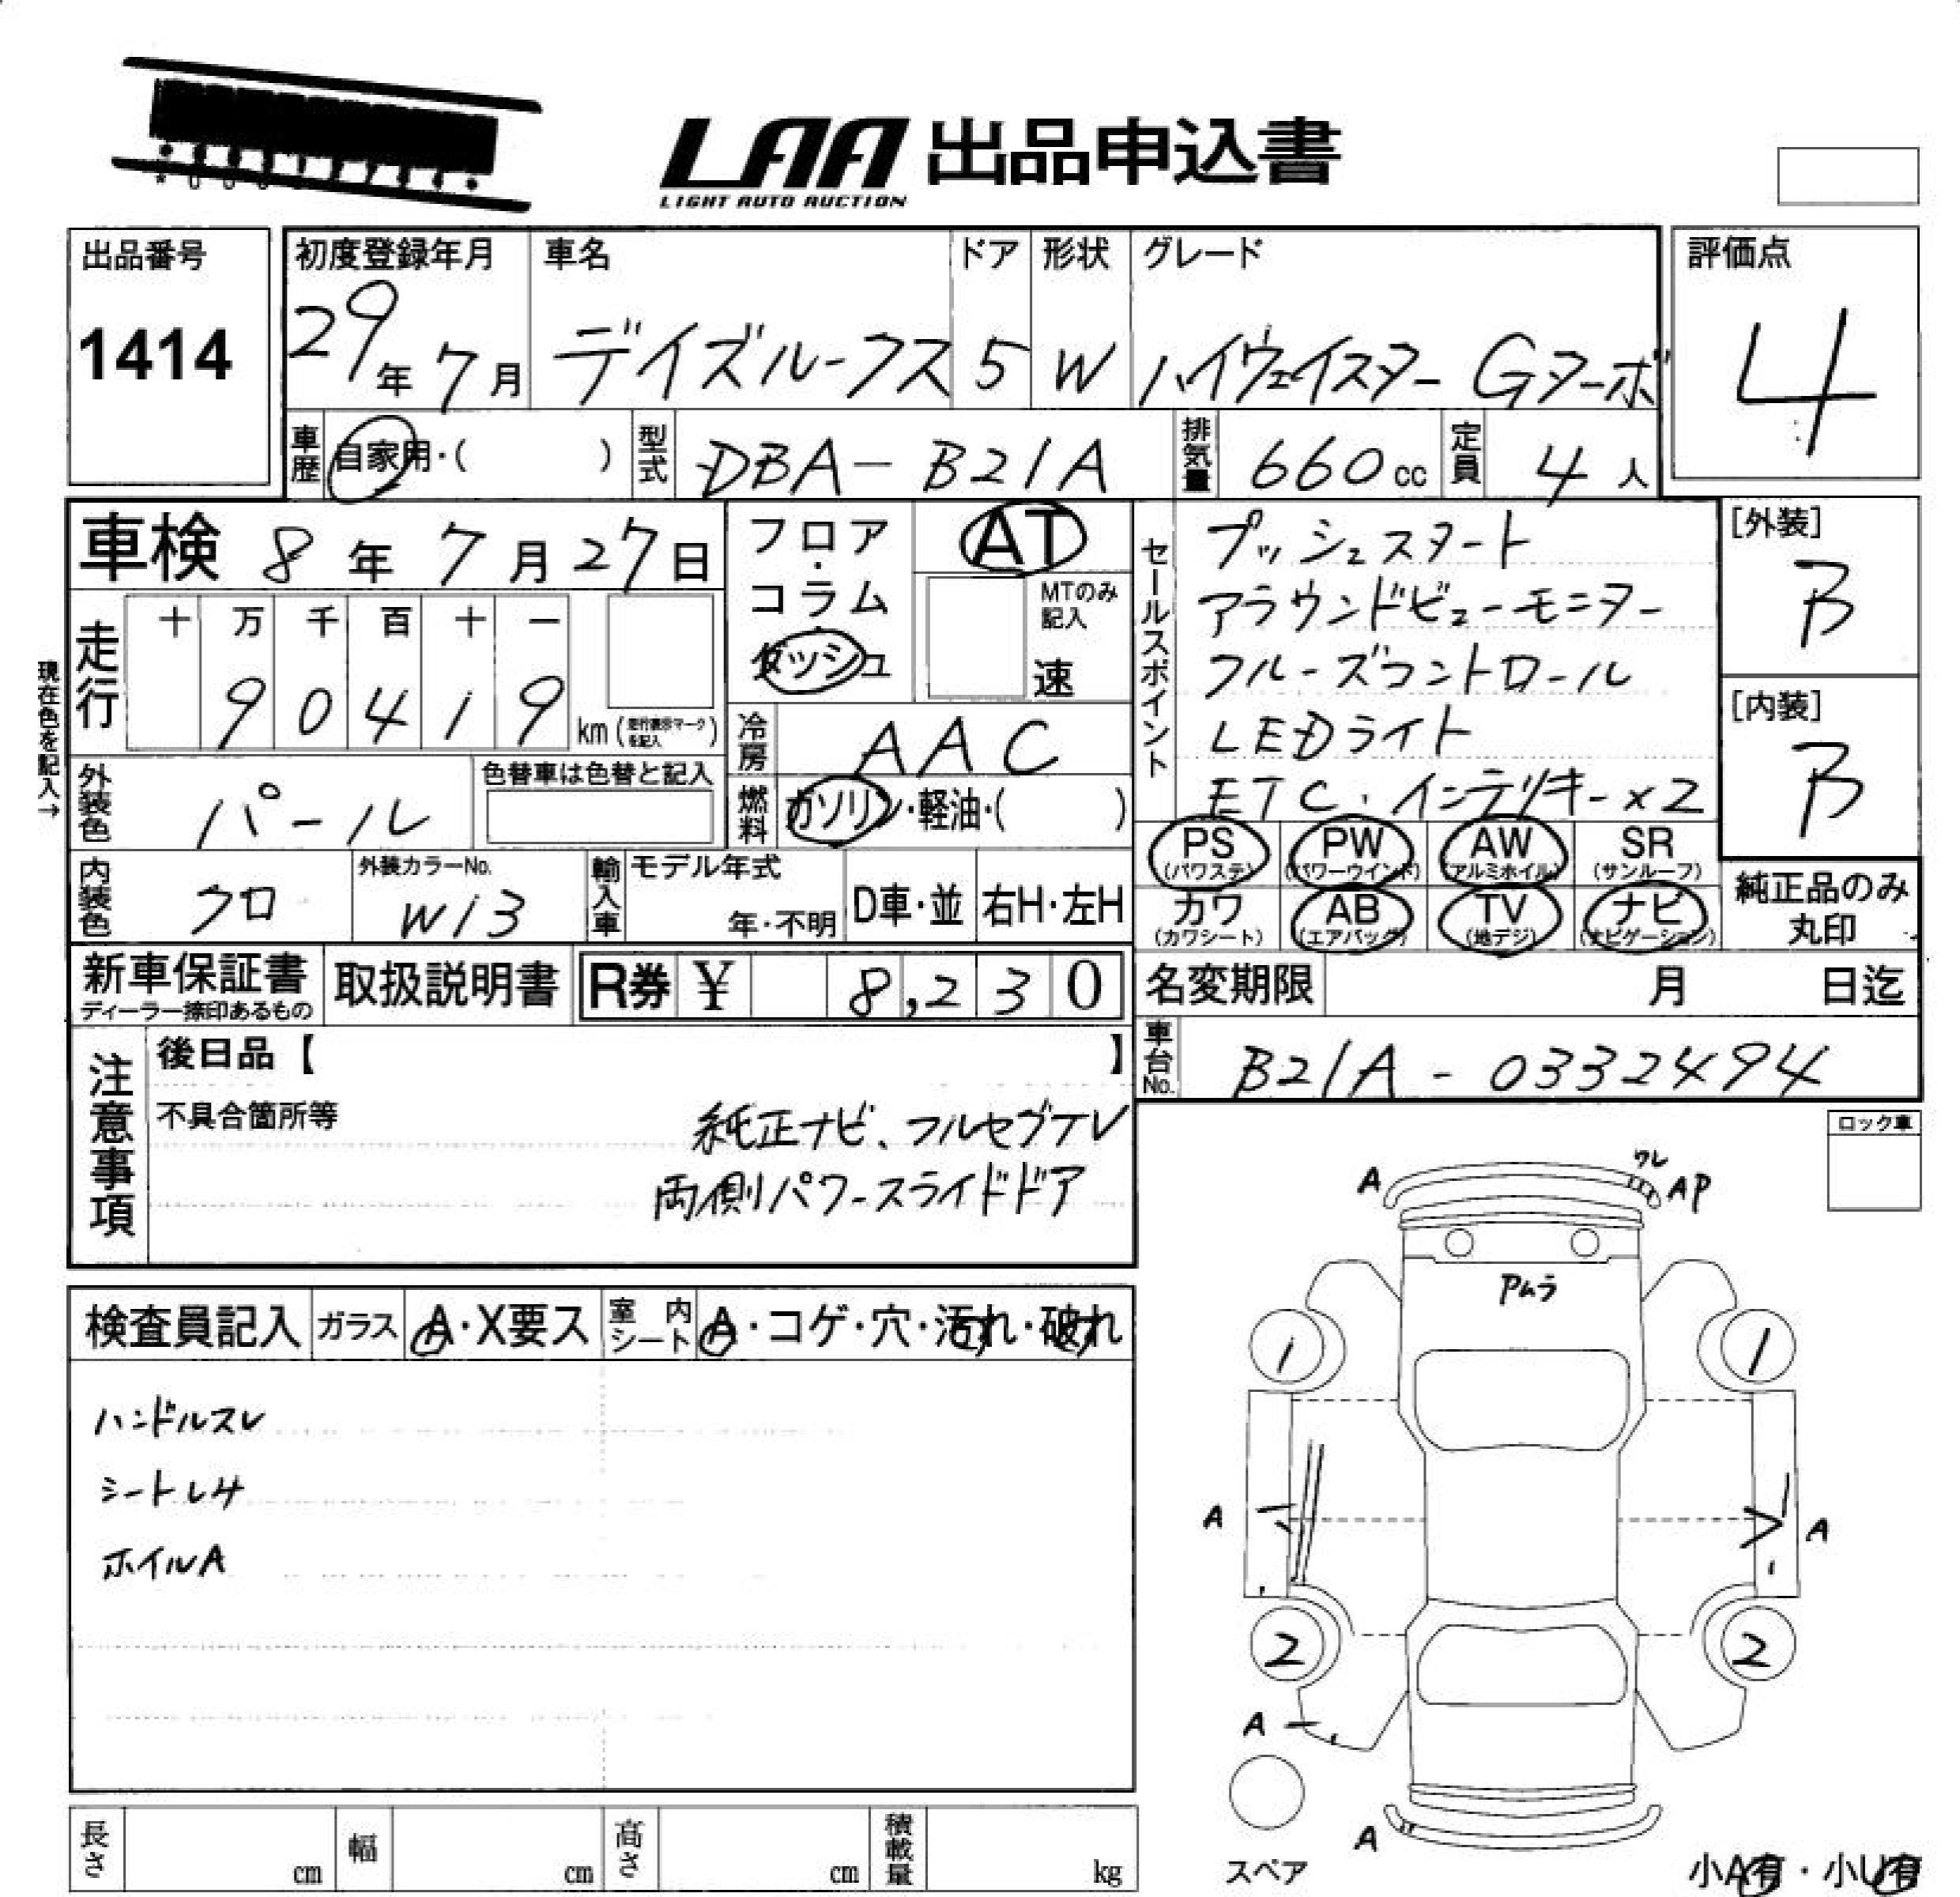 LAA 出品申込書
LIGHT AUTO AUCTION
出品番号
1414
初度登録年月
29年 7月
車名
デイズルークス
ドア
5
形状
W
グレード
ハイウェイスター Gターボ
評価点
4
車歴 自家用・( )
型式 DBA-B21A
排気量 660cc
定員 4人
車検 8年 7月 27日
フロア・コラム・ダッシュ
AT
MTのみ記入
速
現在色を記入→
走行
十 万 千 百 十 一
9 0 4 1 9 km (走行表示マークを記入)
冷房 AAC
外装色 パール
色替車は色替と記入
燃料 ガソリン・軽油・( )
内装色 クロ
外装カラーNo.
W13
輸入車
モデル年式
年・不明
D車・並
右H・左H
セールスポイント
プッシュスタート
アラウンドビューモニター
クルーズコントロール
LEDライト
ETC、インテリキー×2
[外装]
B
[内装]
B
PS (パワステ)
PW (パワーウインド)
AW (アルミホイル)
SR (サンルーフ)
カワ (カワシート)
AB (エアバッグ)
TV (地デジ)
ナビ (ナビゲーション)
純正品のみ丸印
新車保証書
ディーラー捺印あるもの
取扱説明書
R券 ¥ 8,230
名変期限 月 日迄
車台No. B21A-0332494
注意事項
後日品【 】
不具合箇所等
純正ナビ、フルセグTV
両側パワースライドドア
ロック車
検査員記入
ガラス A・X要ス
室内シート A・コゲ・穴・汚れ・破れ
ハンドルスレ
シートレサ
ホイルA
A
ワレ
AP
Pムラ
1
1
A
A
2
2
A
A
スペア
小A有・小U有
長さ cm
幅 cm
高さ cm
積載量 kg